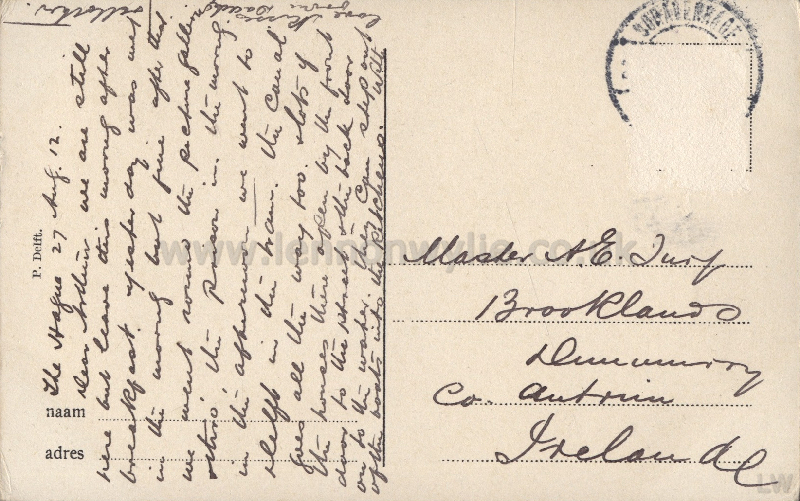 The Hague 27 Aug. 12.
Dear Arthur we are still
here but leave this morng after
breakfast yesterday was wet
in the morng but fine after that
we went round the picture gallery
&
the Prison in the morng
in the afternoon we went to
Delft in the tram. The canal
goes all the way too. & lots of
the houses there open by the front
door to the street & the back door
on to the water. they can step out
of the boats into the kitchens. With
love
from David.
P. Delft.
naam
adres
'SGRAVENHAGE
Master A. E. Turf
Brooklands
Dunmurry
Co. Antrim
Ireland
www.lennonwylie.co.uk
LW